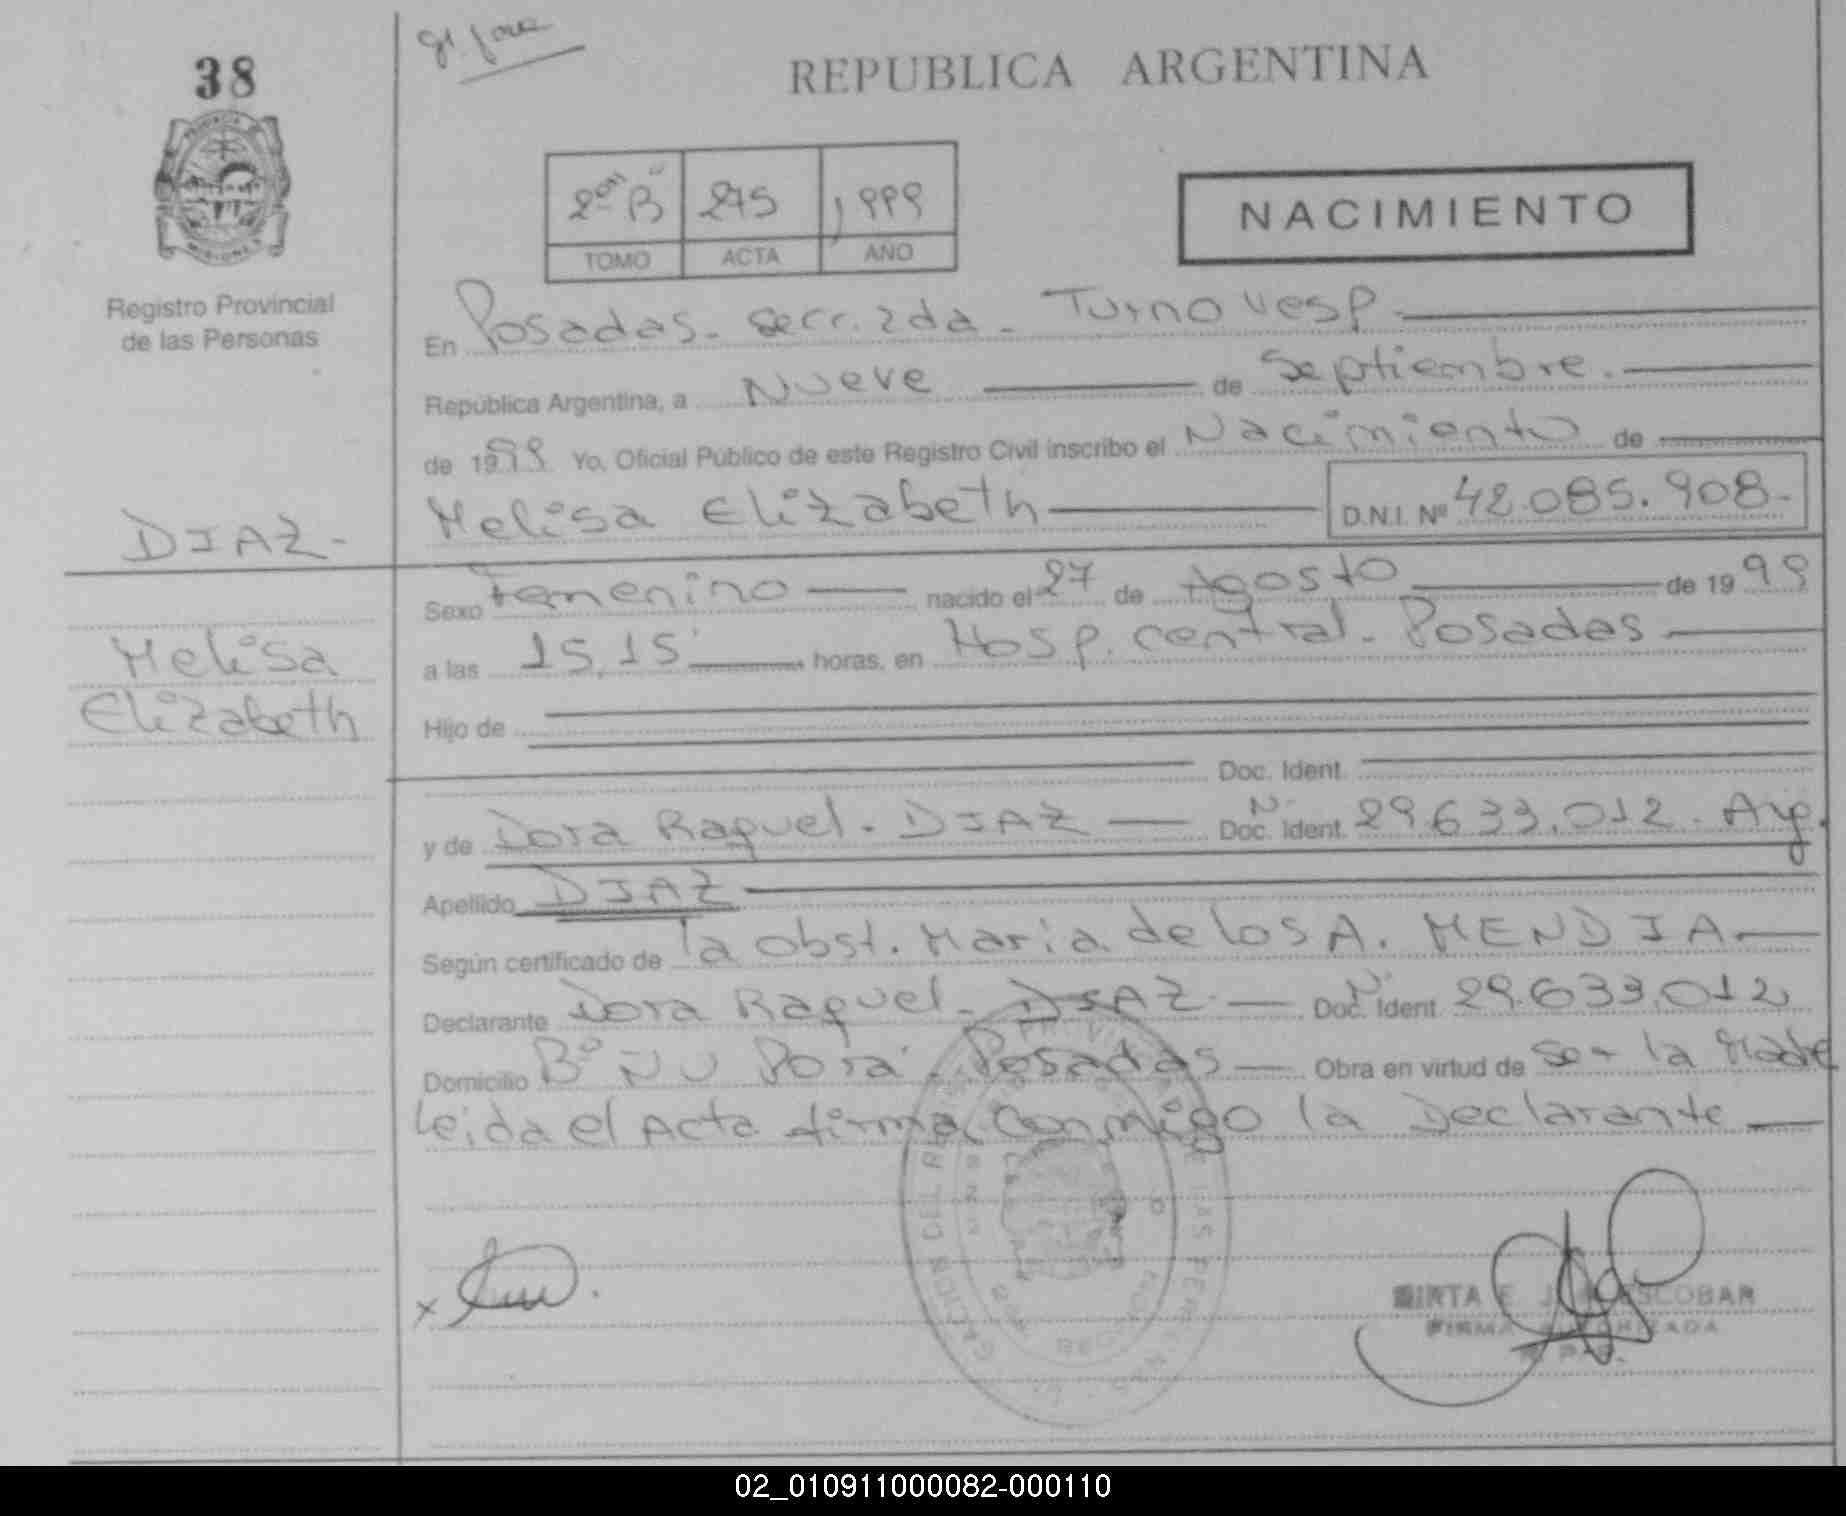 38
REPUBLICA ARGENTINA
PROVINCIA
MISIONES
Registro Provincial
de las Personas
2º B 275 1999
TOMO ACTA AÑO
NACIMIENTO
En Posadas- Secr. 2da - Turno Vesp.
República Argentina, a Nueve de Septiembre.
de 1999 Yo, Oficial Público de este Registro Civil inscribo el Nacimiento de
Melisa Elizabeth D.N.I. Nº 42.085.908-
DIAZ-
Sexo Femenino nacido el 27 de Agosto de 1999
Melisa
Elizabeth
a las 15,15 horas, en Hosp. central - Posadas
Hijo de
Doc. Ident.
y de Dora Raquel - DIAZ Doc. Nº Ident. 29.633.012 - Arg.
Apellido DIAZ
Según certificado de la obst. Maria de los A. MENDIA
Declarante Dora Raquel - DIAZ Doc. Nº Ident. 29.633.012
Domicilio Bº Ñu Pora - Posadas Obra en virtud de ser la Madre
Leida el Acta firma conmigo la Declarante
x
MIRTA E. J. ESCOBAR
FIRMA AUTORIZADA
R.P.P.
02_010911000082-000110